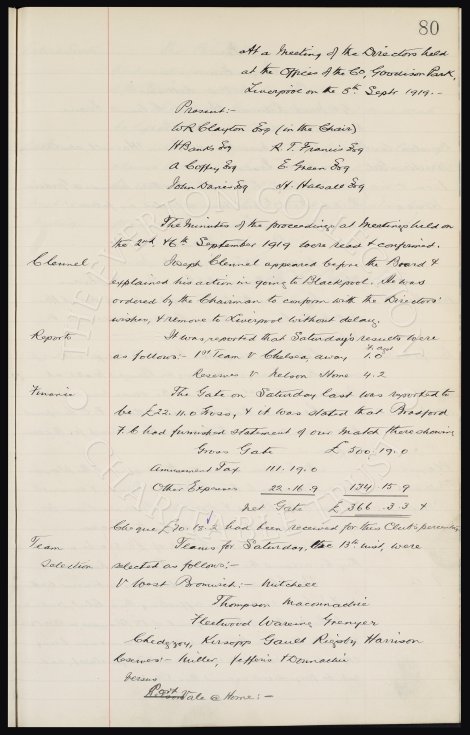 80
At a Meeting of the Directors held
at the Offices of the Co, Goodison Park,
Liverpool on the 8th Septr 1919.-
Present:-
W R Clayton Esq (in the Chair)
H Banks Esq R. T. Francis Esq
A Coffey Esq E. Green Esq
John Davies Esq H. Halsall Esq
The Minutes of the proceedings at Meetings held on
the 2nd & 6th September 1919 were read & confirmed.
Clennel Joseph Clennel appeared before the Board &
explained his action in going to Blackpool. He was
ordered by the Chairman to conform with the Directors'
wishes, & remove to Liverpool without delay.
Reports It was reported that Saturday's results were
F. Agst
as follows:- 1st Team V Chelsea, away 1. 0
Reserves V Nelson Home 4. 2
Finance The Gate on Saturday last was reported to
be £22. 11. 0 & it was stated that Bradford
F. C. had furnished statement of our match there showing
Gross Gate £ 500. 19. 0
Amusement Tax 111. 19. 0
Other Expenses 22. 16. 9 134 15. 9
Net Gate £ 366. 3. 3 &
Cheque £70. 15. 2 had been received for this Club's percentage
Team Teams for Saturday, the 13th inst, were
Selection selected as follows:-
V West Bromwich:- Mitchell
Thompson Maconnachie
Fleetwood Wareing Grenyer
Chedgzoy, Kirsopp Gault Rigsby Harrison
Reserves:- Miller, Jefferis & Donnachie
Versus
Port Vale @ Home:-
THE EVERTON COLLECTION
CHARITABLE TRUST